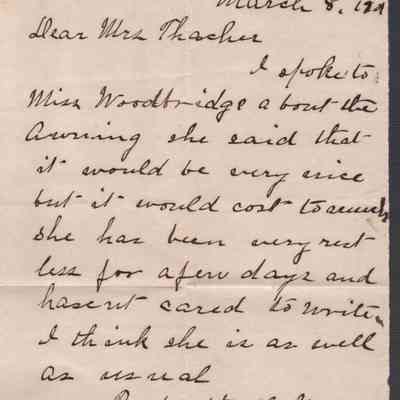 March 8, 19
Dear Mrs Thacher
I spoke to
Miss Woodbridge about the
Awning she said that
it would be very nice
but it would cost to much
she has been very rest
less for a few days and
hasent cared to write
I think she is as well
as usual